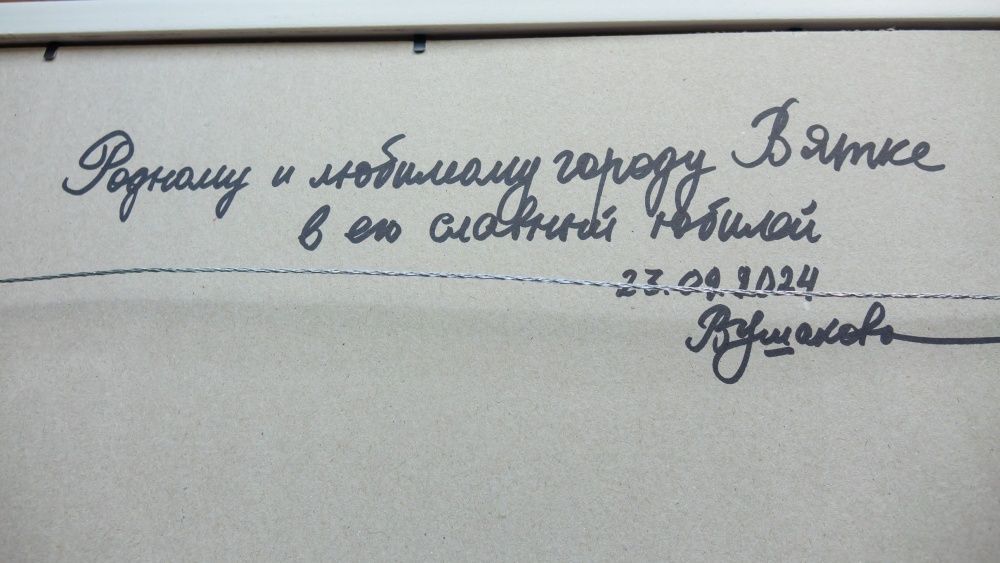 Родному и любимому городу Вятке
в его славный юбилей
23.09.2024
ВУшакова